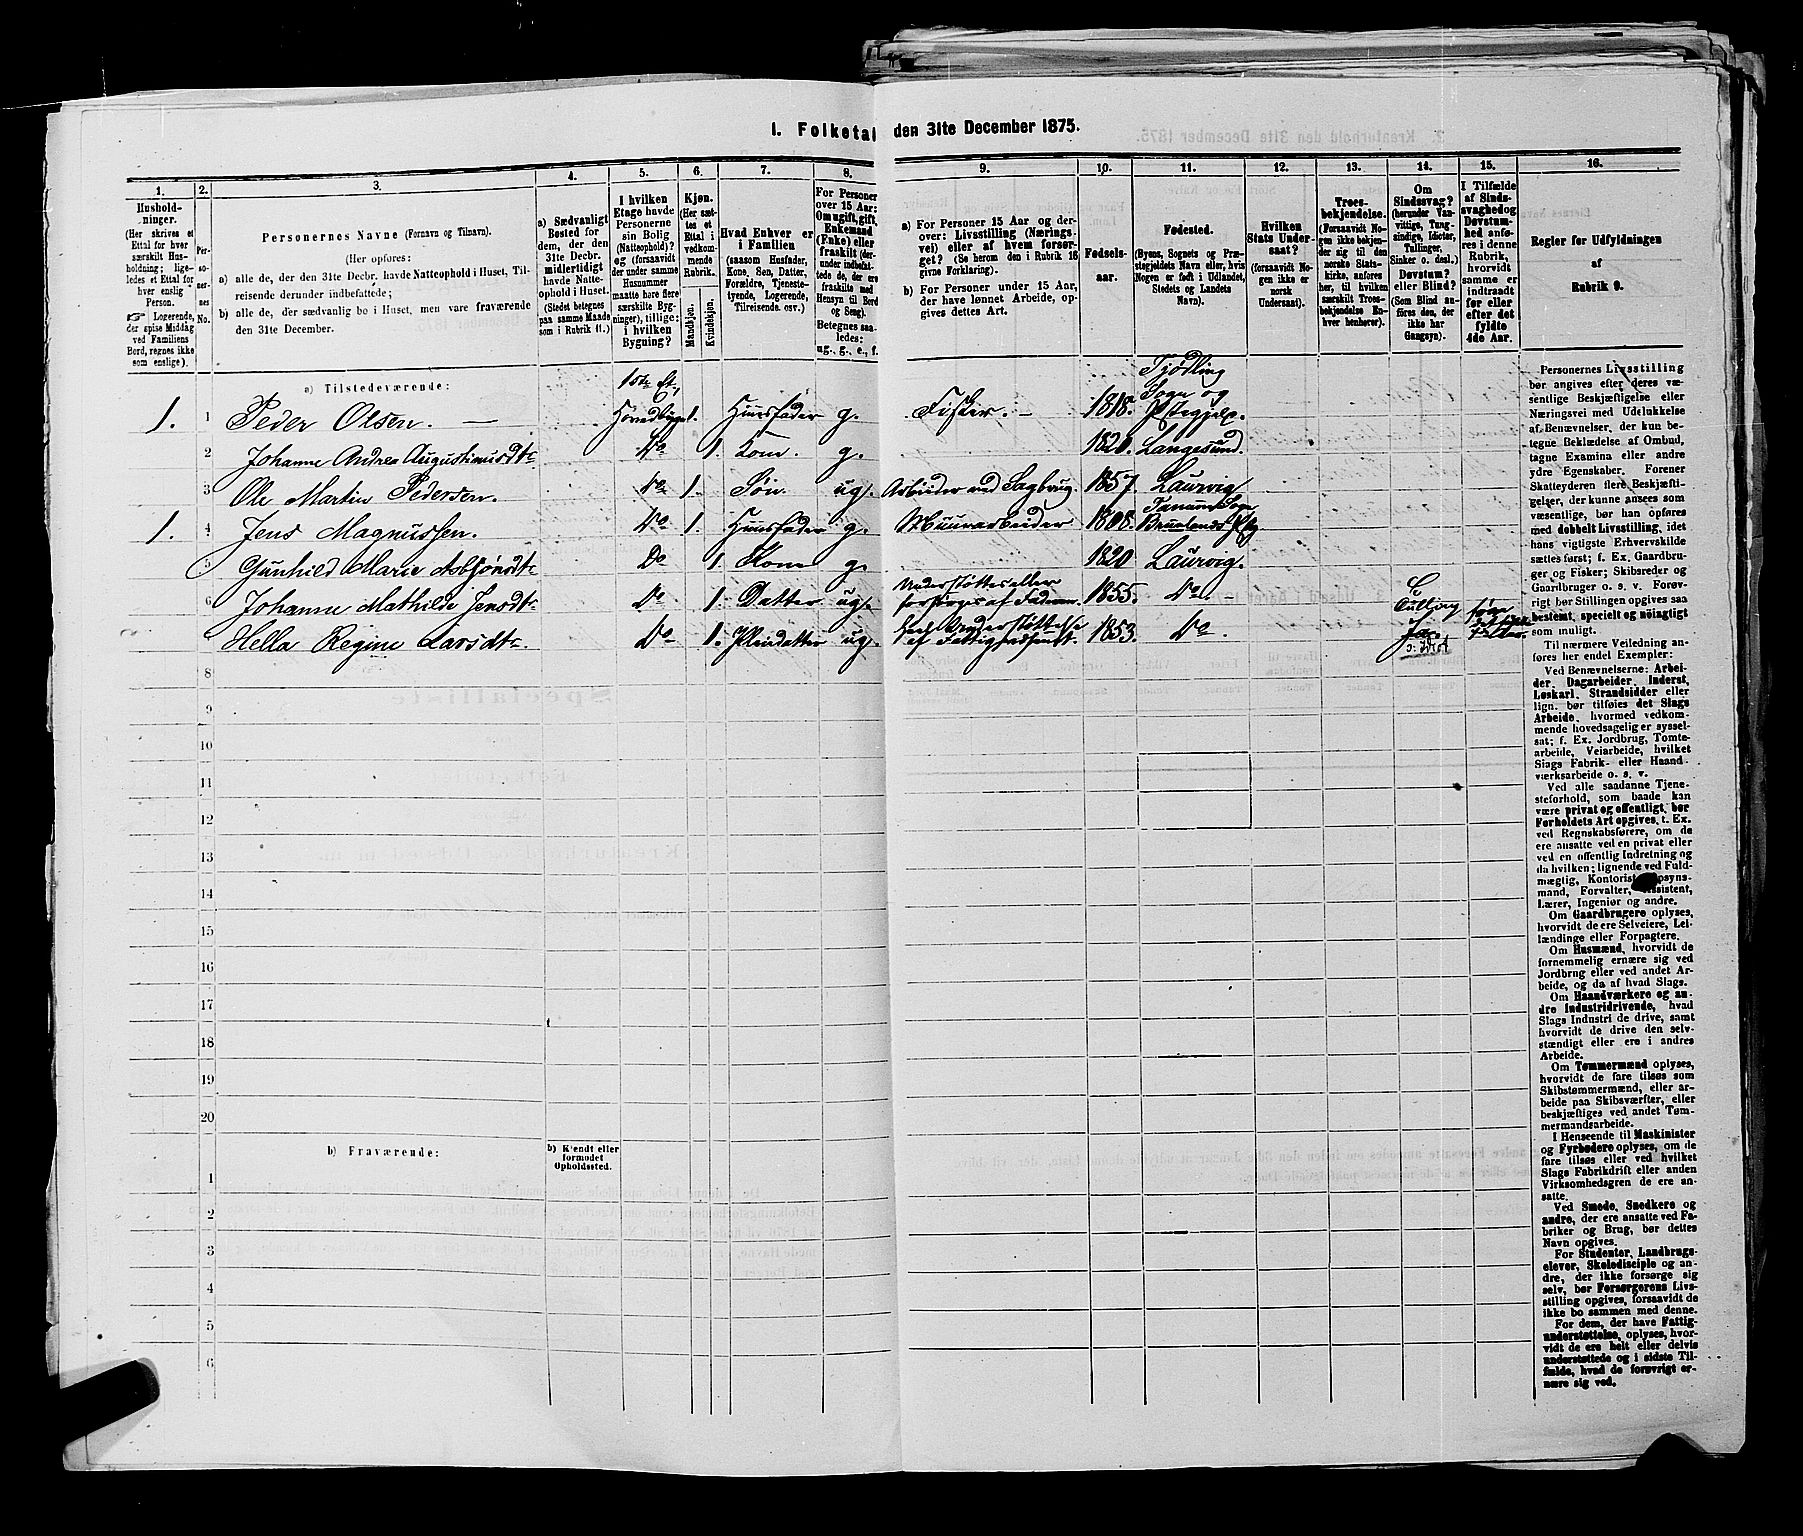 I. Folketal den 31te December 1875.
1. 2. 3. 4. 5. 6. 7. 8. 9. 10. 11. 12. 13. 14. 15. 16.
Hushold-
ninger.
(Her skrives et
Ettal for hver
særskilt Hus-
holdning; lige-
ledes et Ettal for
hver enslig
Person.
☞ Logerende,
der spise Middag
ved Familiens
Bord, regnes ikke
som enslige).
Per-
so-
ner-
nes
No.
Personernes Navne (Fornavn og Tilnavn).
(Her opføres:
a) alle de, der den 31te Decbr. havde Natteophold i Huset, Til-
reisende derunder indbefattede;
b) alle de, der sædvanlig bo i Huset, men vare fraværende
den 31te December.
a) Sædvanligt
Bosted for
dem, der den
31te Decbr.
midlertidigt
havde Natte-
ophold i Huset.
(Stedet betegnes
paa samme Maade
som i Rubrik 11.)
I hvilken
Etage havde
Personerne
sin Bolig
(Natteophold)?
og (forsaavidt
der under samme
Husnummer
maatte høre flere
særskilte Byg-
ninger), tillige:
i hvilken
Bygning?
Kjøn.
(Her sæt-
tes et
Ettal i
vedkom-
mende
Rubrik.
Mandkjøn.
Kvindekjøn.
Hvad Enhver er
i Familien
(saasom Husfader,
Kone, Søn, Datter,
Forældre, Tjeneste-
tyende, Logerende,
Tilreisende osv.)
For Personer
over 15 Aar:
Om ugift, gift,
Enkemand
(Enke) eller
fraskilt (der-
under indbefat-
tede de, der ere
fraskilte med
Hensyn til Bord
og Seng).
Betegnes saa-
ledes:
ug., g., e., f.
a) For Personer 15 Aar og der-
over: Livsstilling (Nærings-
vei) eller af hvem forsør-
get? (Se herom den i Rubrik 16
givne Forklaring).
b) For Personer under 15 Aar,
der have lønnet Arbeide, op-
gives dettes Art.
Fødsels-
aar.
Fødested.
(Byens, Sognets og Præ-
stegjeldets Navn, eller, hvis
Nogen er født i Udlandet,
Stedets og Landets
Navn).
Hvilken
Stats Under-
saat?
(forsaavidt No-
gen ikke er
norsk
Undersaat).
Troes-
bekjendelse.
(Forsaavidt No-
gen ikke bekjen-
der sig til den
norske Stats-
kirke, anføres
her, til hvilken
særskilt Troes-
bekjendelse En-
hver henhører).
Om
Sindssvag?
(herunder Van-
vittige, Tung-
sindige, Idioter,
Tullinger,
Sinker o. desl.)
Døvstum?
eller Blind?
(Som Blind an-
føres den, der
ikke har
Gangsyn).
I Tilfælde
af Sinds-
svaghed og
Døvstum-
hed anfø-
res i denne
Rubrik,
hvorvidt
samme er
indtraadt
før eller
efter det
fyldte
4de Aar.
Regler for Udfyldningen
af
Rubrik 9.
a) Tilstedeværende:
1. 1 Peder Olsen. 1ste Et, Hovedbygn 1. Huusfader g. Fisker. 1818. Tjødling Sogn og Pstegjelp.
2 Johanne Andrea Augustinusdtr Do 1. Kone. g. 1820. Langesund.
3 Ole Martin Pedersen. Do 1. Søn. ug. Arbeider ved Sagbrug. 1857. Laurvig
1. 4 Jens Magnussen. Do 1. Huusfader g. Muurarbeider 1808. Tanum Sogn Brunlands Pstg
5 Gunhild Marie Asbjøndtr Do 1. Kone g. 1820 Laurvig.
6 Johanne Mathilde Jensdtr Do 1. Datter ug. Understøttes eller forsørges af Faderen. 1855. Do Tulling
Hella Regine Larsdtr. Do 1. Pleiedatter ug. ved Understøttelse af Fattigvæsenet. 1853. Do. Ja. ɔ: Idiot
8
9
10
11
12
13
14
15
16
17
18
19
20
b) Fraværende:
b) Kjendt eller
formodet
Opholdssted.
1
2
3
4
5
6
Personernes Livsstilling
bør angives efter deres væ-
sentlige Beskjæftigelse eller
Næringsvei med Udelukkelse
af Benævnelser, der kun be-
tegne Beklædelse af Ombud,
tagne Examina eller andre
ydre Egenskaber. Forener
Skatteyderen flere Beskjæfti-
gelser, der kunne ansees som
væsentlige, bør han opføres
med dobbelt Livsstilling, idet
hans vigtigste Erhvervskilde
sættes først; f. Ex. Gaardbru-
ger og Fisker; Skibsreder og
Gaardbruger o. s. v. Forøv-
rigt bør Stillingen opgives saa
bestemt, specielt og nøiagtigt
som muligt.
Til nærmere Veiledning an-
føres her endel Exempler:
Ved Benævnelserne: Arbei-
der, Dagarbeider, Inderst,
Løskarl, Strandsidder eller
lign. bør tilføies det Slags
Arbeide, hvormed vedkom-
mende hovedsagelig er syssel-
sat; f. Ex. Jordbrug, Tomte-
arbeide, Veiarbeide, hvilket
Slags Fabrik- eller Haand-
værksarbeide o. s. v.
Ved alle saadanne Tjene-
steforhold, som baade kan
være privat og offentligt, bør
Forholdets Art opgives, t. Ex.
ved Regnskabsførere, om de
ere ansatte ved en privat eller
ved en offentlig Indretning og
da hvilken; lignende ved Fuld-
mægtig, Kontorist, Opsyns-
mand, Forvalter, Assistent,
Lærer, Ingeniør og andre.
Om Gaardbrugere oplyses,
hvorvidt de ere Selveiere, Lei-
lændinge eller Forpagtere.
Om Husmænd, hvorvidt de
fornemmelig ernære sig ved
Jordbrug eller ved andet Ar-
beide, og da af hvad Slags.
Om Haandværkere og an-
dre Industridrivende, hvad
Slags Industri de drive, samt
hvorvidt de drive den selv-
stændigt eller ere i andres
Arbeide.
Om Tømmermænd oplyses,
hvorvidt de fare tilsøs som
Skibstømmermænd, eller ar-
beide paa Skibsværfter, eller
beskjæftiges ved andet Tøm-
mermandsarbeide.
I Henseende til Maskinister
og Fyrbødere oplyses, om de
fare tilsøs eller ved hvilket
Slags Fabrikdrift eller anden
Virksomhedsgren de ere an-
satte.
Ved Smede, Snedkere og
andre, der ere ansatte ved Fa-
briker og Brug, bør dettes
Navn opgives.
For Studenter, Landbrugs-
elever, Skoledisciple og an-
dre, der ikke forsørge sig
selv, bør Forsørgerens Livs-
stilling opgives, forsaavidt de
ikke bo sammen med denne.
For dem, der have Fattig-
understøttelse, oplyses, hvor-
vidt de ere helt eller delvis
understøttede og i sidste Til-
fælde, hvad de forøvrigt er-
nære sig ved.